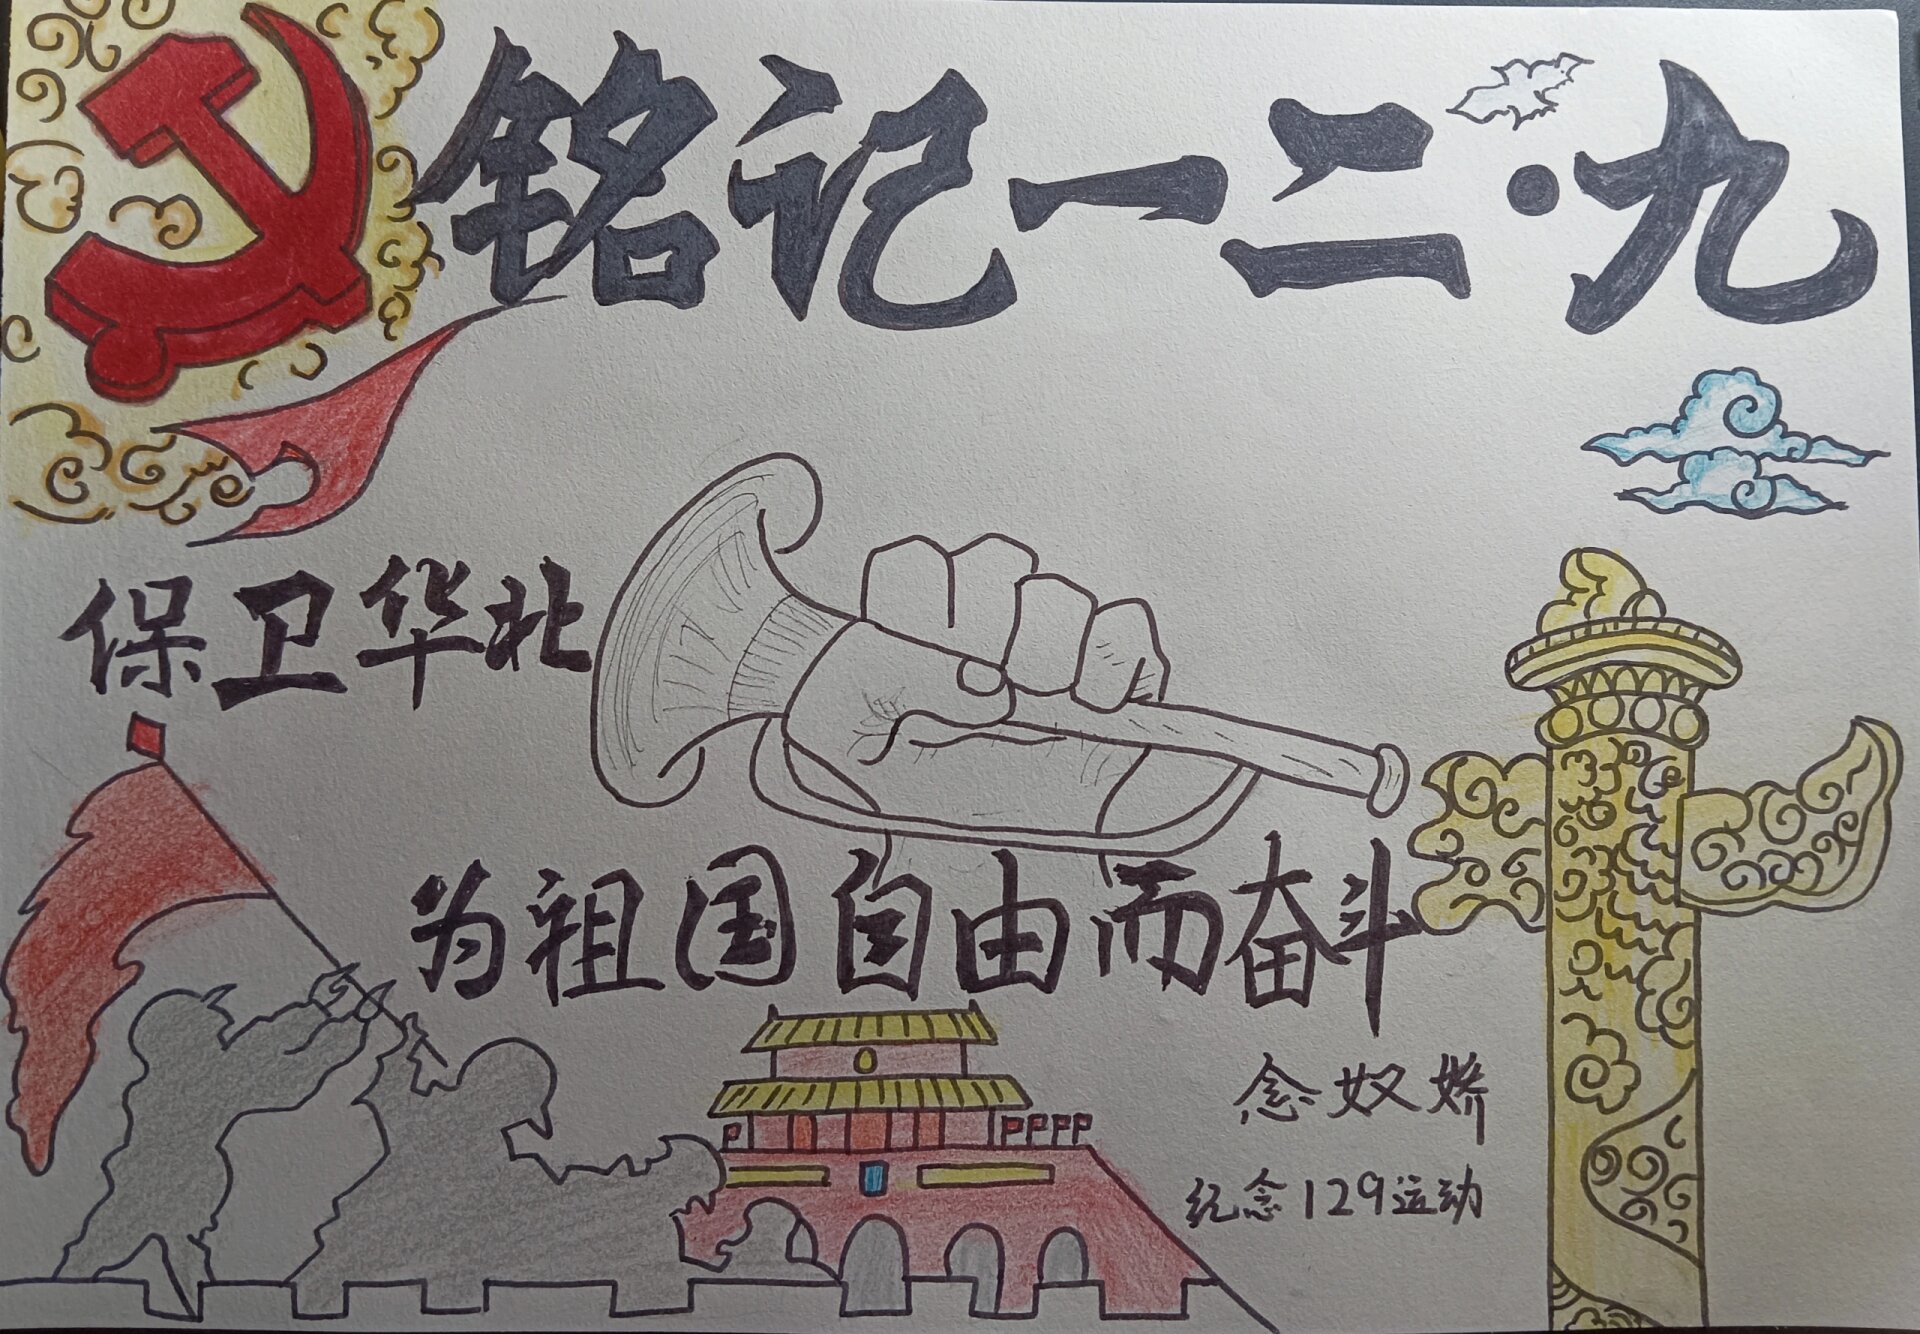 铭记一二·九
保卫华北
为祖国自由而奋斗
念奴娇
纪念129运动